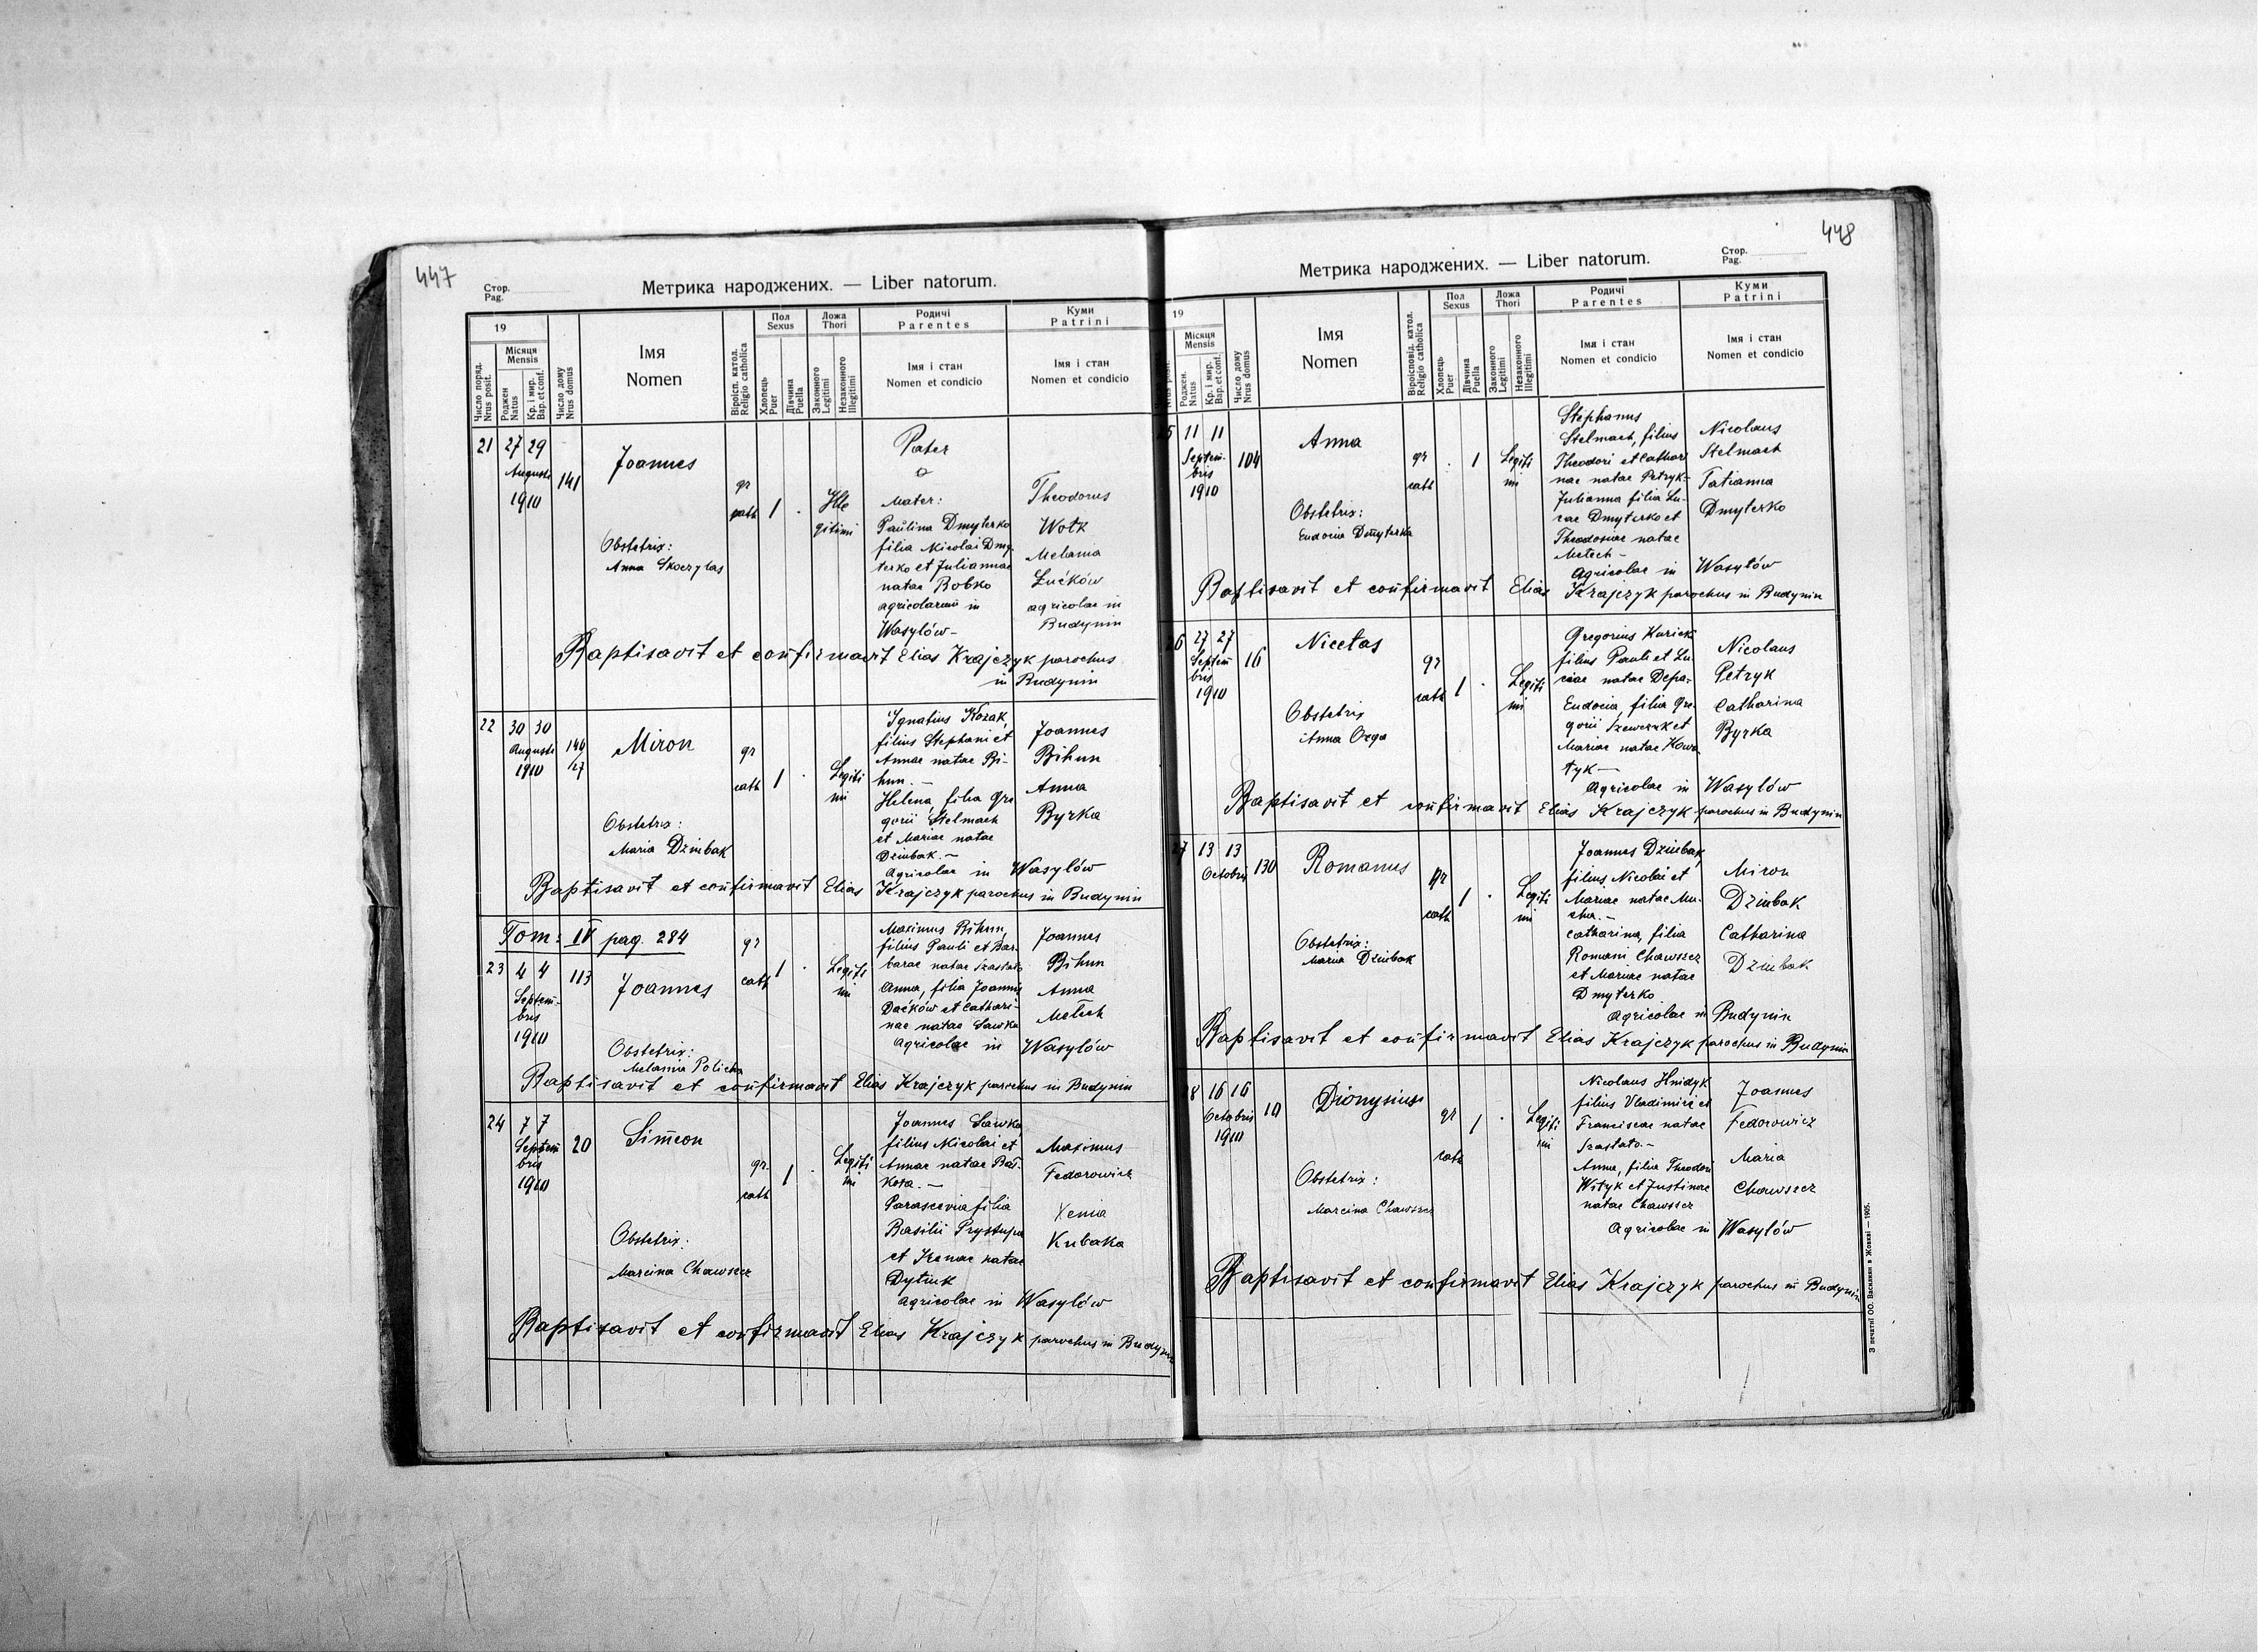 447
Стор.
Pag.
Метрика народжених. — Liber natorum.
19
Місяця
Mensis
Число поряд.
Nrus posit.
Роджен
Natus
Кр. і мир.
Bap. et conf.
Число дому
Nrus domus
Імя
Nomen
Віроісп. катол.
Religio catholica
Пол
Sexus
Хлопець
Puer
Дївчина
Puella
Ложа
Thori
Законного
Legitimi
Незаконного
Illegitimi
Родичі
Parentes
Імя і стан
Nomen et condicio
Куми
Patrini
Імя і стан
Nomen et condicio
21 27 29
Augusti
1910
141
Joannes
Obstetrix:
Anna Skoczylas
gr
cath
1 .
Ille
gitimi
Pater
Mater:
Paulina Dmyterko
filia Nicolai Dmy-
terko et Juliannae
natae Bobko
agricolarum in
Wasylów-
Theodorus
Wolk
Melania
Łućków
agricolae in
Budynin
Baptisavit et confirmavit Elias Krajczyk parochus
in Budynin
22 30 30
Augusti
1910
146
/27
Miron
Obstetrix:
Maria Dziubak
gr
cath
1 .
Legiti
mi
Ignatius Kozak,
filius Stephani et
Annae natae Bi-
hun.—
Helena, filia Gre
gorii Stelmach
et Mariae natae
Dziubak.—
Agricolae in Wasylów
Joannes
Bihun
Anna
Byrka
Baptisavit et confirmavit Elias Krajczyk parochus in Budynin
Tom: IV pag. 284
23 4 4
Septem-
bris
1910
113
Joannes
Obstetrix:
Melania Policha
gr
cath
1 .
Legiti
mi
Maximus Bihun,
filius Pauli et Bar-
barae natae Szastało
Anna, filia Joannis
Daćków et Cathari-
nae natae Sawka
Agricolae in Wasylów
Joannes
Bihun
Anna
Melech
Baptisavit et confirmavit Elias Krajczyk parochus in Budynin
24 7 7
Septem
bris
1910
20
Simeon
Obstetrix:
Marcina Chawszcz
gr.
cath
1 .
Legiti
mi
Joannes Sawka
filius Nicolai et
Annae natae Bał-
kota.—
Parascevia filia
Basilii Prystupa
et Irenae natae
Dytiuk
Agricolae in Wasylów
Maximus
Fedorowicz
Xenia
Kubaka
Baptisavit et confirmavit Elias Krajczyk parochus in Budynin
448
Стор.
Pag.
Метрика народжених. — Liber natorum.
19
Місяця
Mensis
Роджен.
Natus
Кр. і мир.
Bap. et conf.
Число дому
Nrus domus
Імя
Nomen
Віроісповід. катол.
Religio catholica
Пол
Sexus
Хлопець
Puer
Дївчина
Puella
Ложа
Thori
Законного
Legitimi
Незаконного
Illegitimi
Родичі
Parentes
Імя і стан
Nomen et condicio
Куми
Patrini
Імя і стан
Nomen et condicio
5 11 11
Septem-
bris
1910
104
Anna
Obstetrix:
Eudocia Dmyterko
gr
cath
. 1
Legiti
mi
Stephanus
Stelmach, filius
Theodori et Cathari
nae natae Petryk-
Julianna filia Lu-
cae Dmyterko et
Theodosiae natae
Melech-
Agricolae in Wasylów
Nicolaus
Stelmach
Tatianna
Dmyterko
Baptisavit et confirmavit Elias Krajczyk parochus in Budynin
26 27 27
Septem
bris
1910
16
Nicetas
Obstetrix
Anna Ozga
gr
cath
1 .
Legiti
mi
Gregorius Kurick
filius Pauli et Lu
ciae natae Depa-
Eudocia, filia Gre
gorii Szewczuk et
Mariae natae Kowa
tyk—
Agricolae in Wasylów
Nicolaus
Petryk
Catharina
Byrka
Baptisavit et confirmavit Elias Krajczyk parochus in Budynin
27 13 13
Octobris
130
Romanus
Obstetrix:
Maria Dziubak
gr
cath
1 .
Legiti
mi
Joannes Dziubak,
filius Nicolai et
Mariae natae Mu-
cha.—
Catharina, filia
Romani Chawszcz
et Mariae natae
Dmyterko
Agricolae in Budynin
Miron
Dziubak
Catharina
Dziubak
Baptisavit et confirmavit Elias Krajczyk parochus in Budynin
28 16 16
Octobris
1910
19
Dionysius
Obstetrix:
Marcina Chawszcz
gr
cath
1 .
Legiti
mi
Nicolaus Hnidyk
filius Vladimiri et
Franciscae natae
Szastało.—
Anna, filia Theodori
Wityk et Justinae
natae Chawszcz
Agricolae in Wasylów
Joannes
Fedorowicz
Maria
Chawszcz
Baptisavit et confirmavit Elias Krajczyk parochus in Budynin
З печатнї ОО. Василиян в Жовкві — 1905.